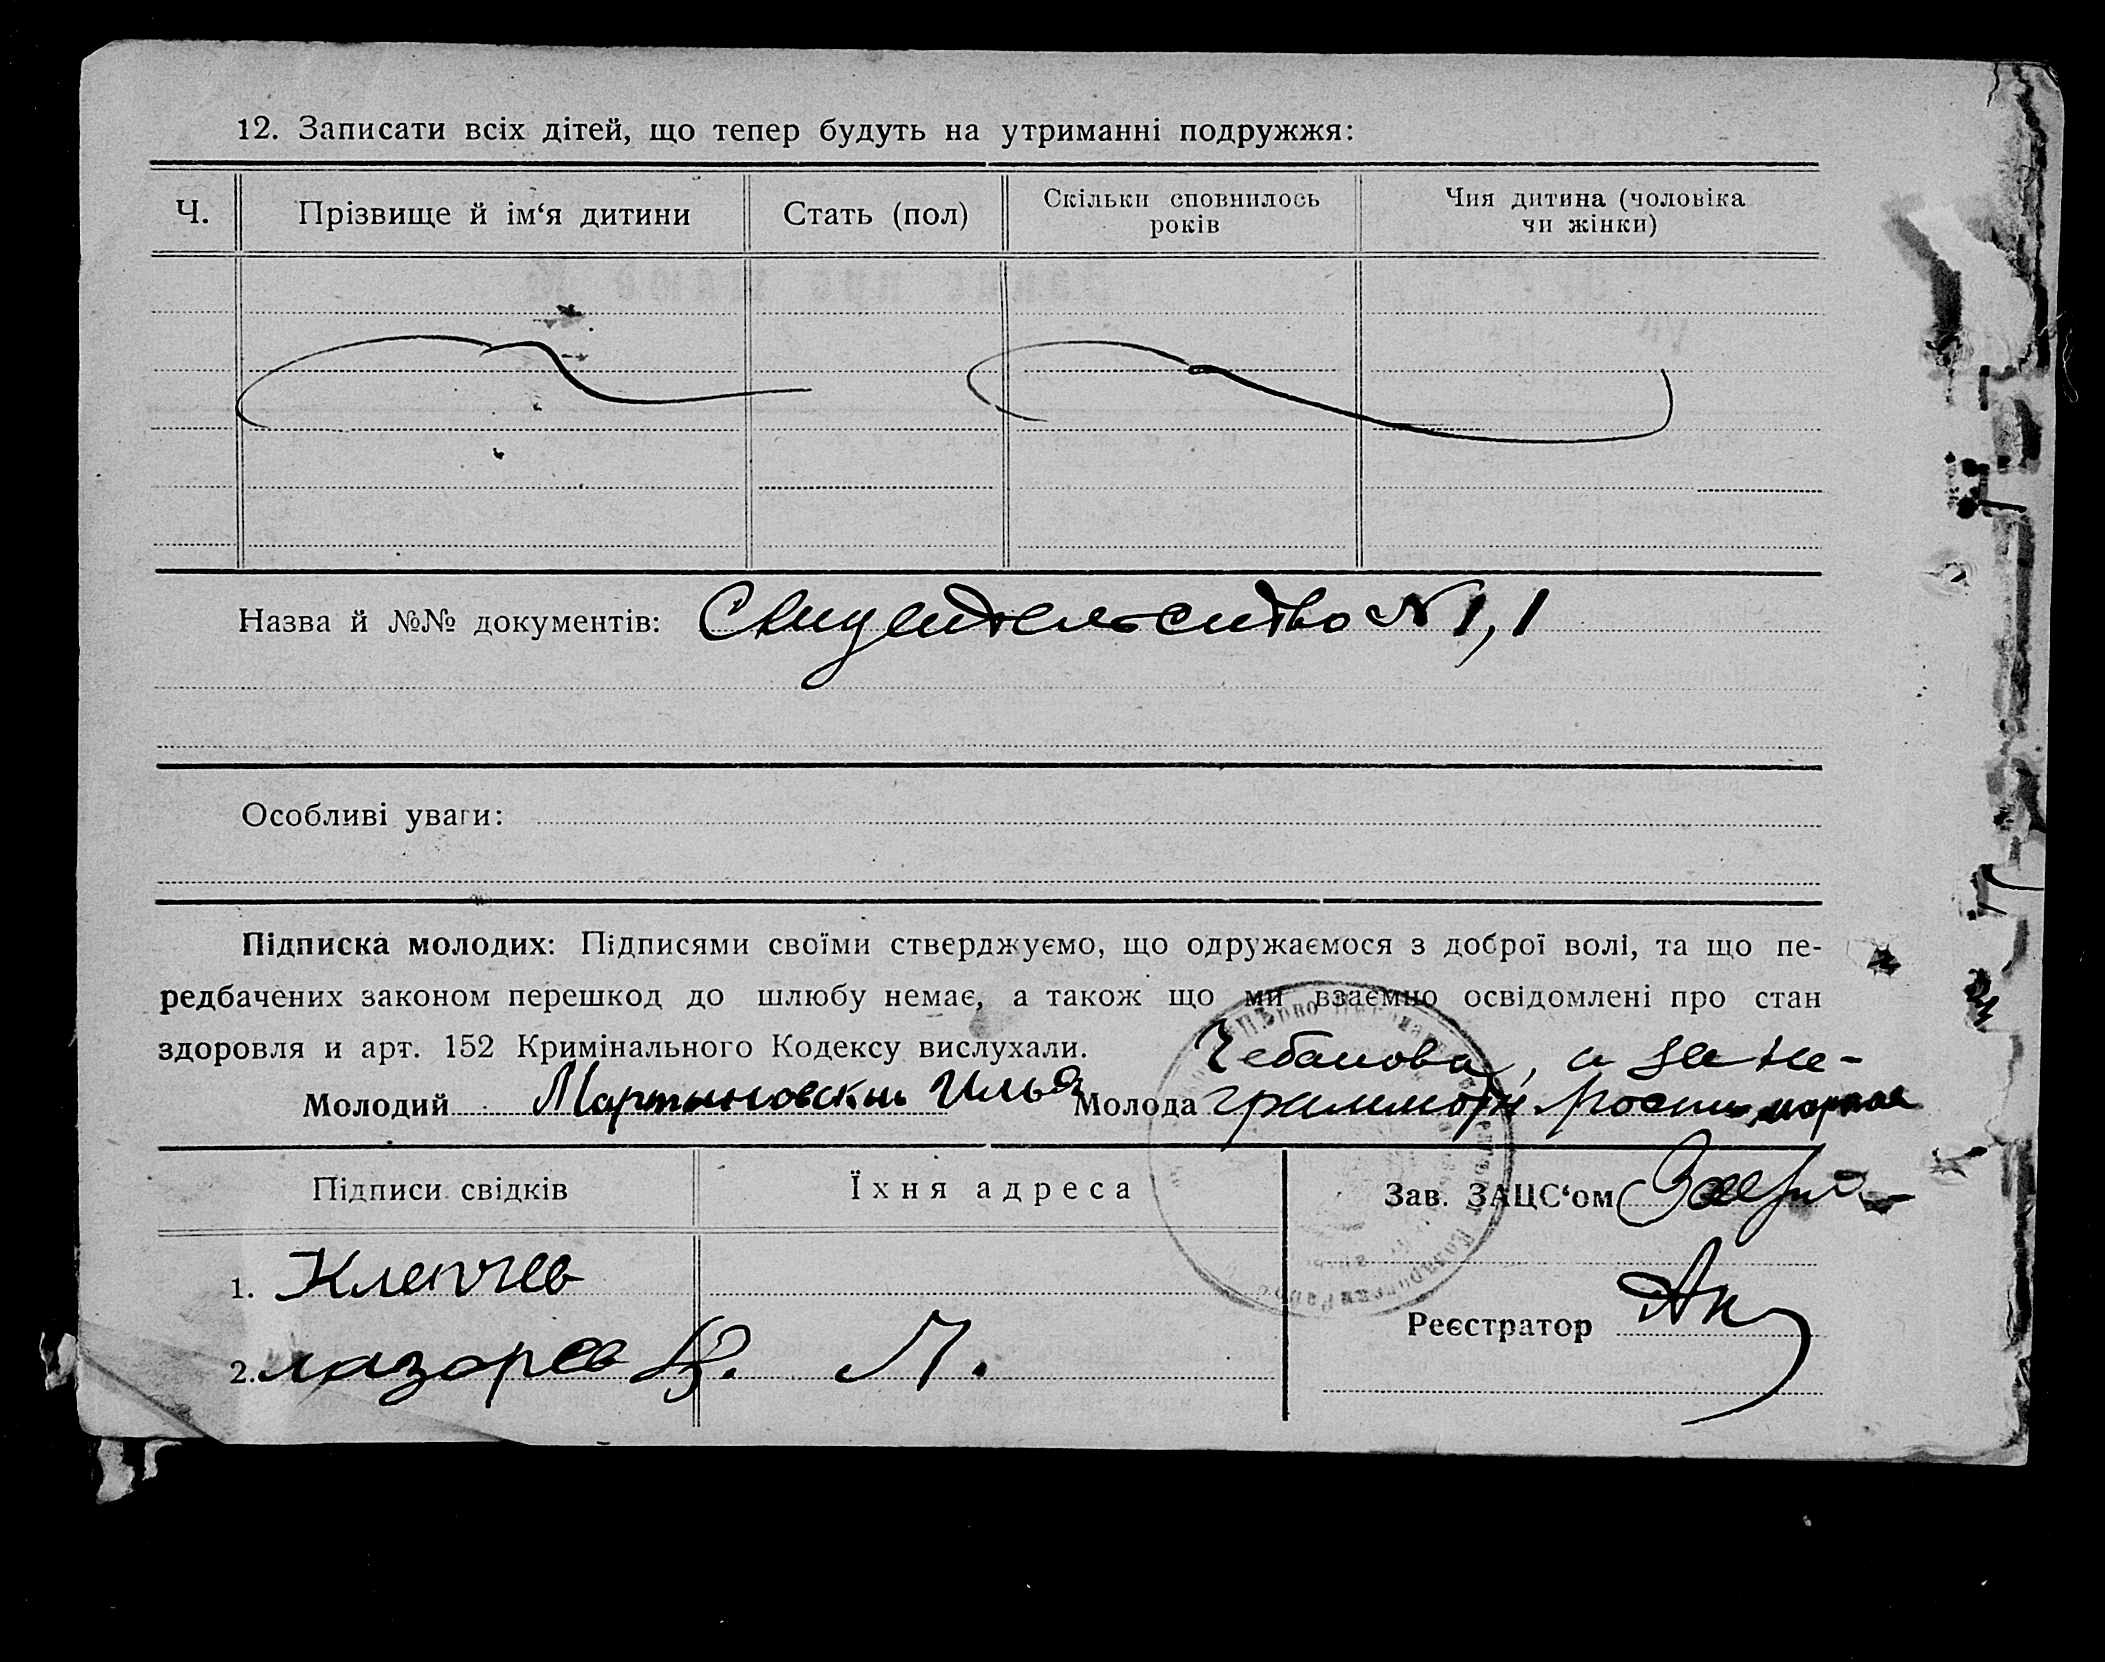 12. Записати всіх дітей, що тепер будуть на утриманні подружжя:
Ч.
Прізвище й ім‘я дитини
Стать (пол)
Скільки сповнилось
років
Чия дитина (чоловіка
чи жінки)
Назва й №№ документів: Свидетельство № 1, 1
Особливі уваги:
Підписка молодих: Підписями своїми стверджуємо, що одружаємося з доброї волі, та що пе-
редбачених законом перешкод до шлюбу немає, а також що ми взаємно освідомлені про стан
здоровля и арт. 152 Кримінального Кодексу вислухали.
Чебанова, а за не-
Молодий Мартыновский Илья Молода грамотн. росп.
Підписи свідків
Їхня адреса
Зав. ЗАЦС‘ом
1. Клепчев
Реєстратор
2. лазорев В. Л.